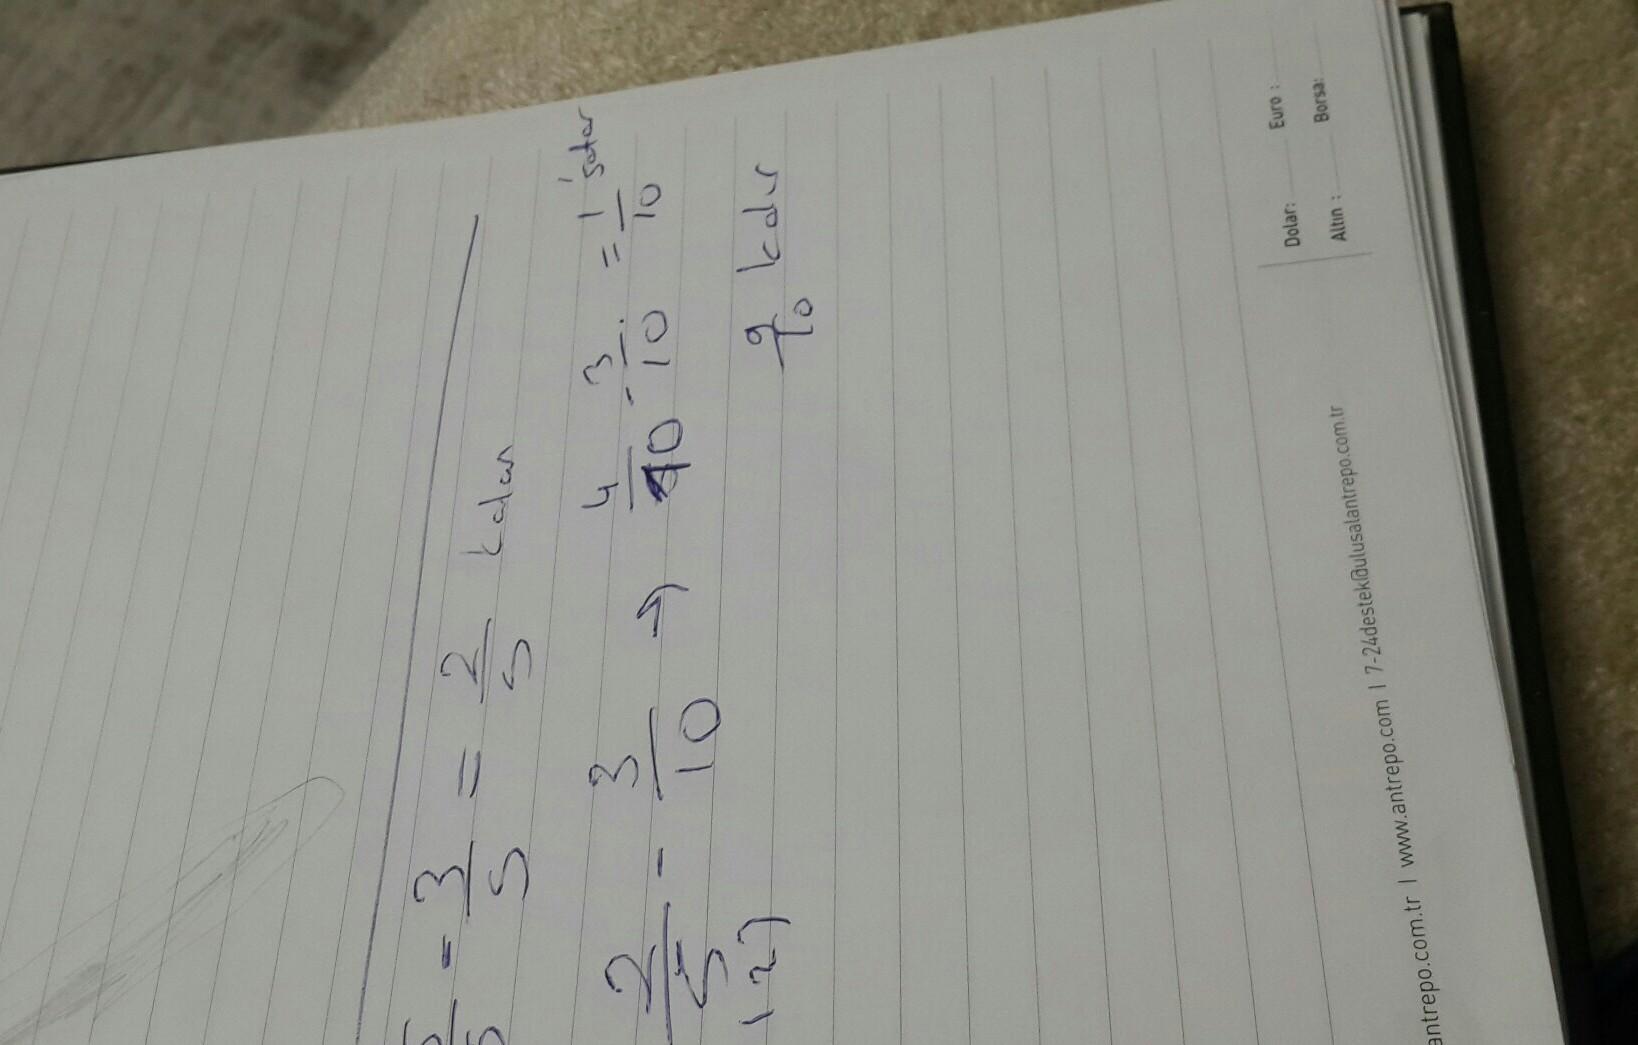 5/5 - 3/5 = 2/5 kalan
2/5 - 3/10 → 4/10 - 3/10 = 1/10 'satar
(2)
9/10 kalır
Dolar: Euro :
Altın : Borsa:
antrepo.com.tr | www.antrepo.com | 7-24destek@ulusalantrepo.com.tr